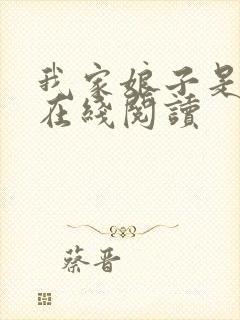 我家娘子是
在綫閱讀
蔡晋